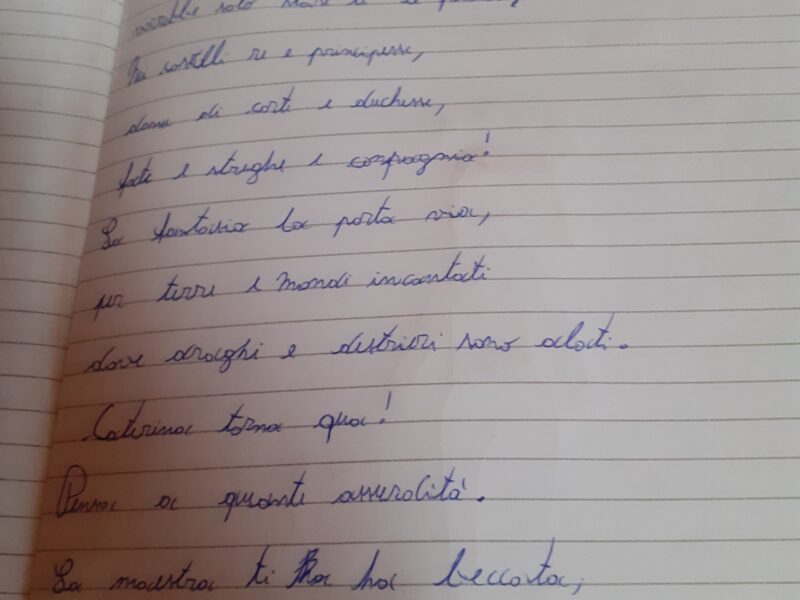 solo stare a
Nei castelli re e principesse,
dame di corte e duchesse,
fate e streghe e compagnia!
La fantasia la porta via,
per terre e mondi incantati
dove draghi e destrieri sono alati.
Caterina torna qua!
Pensa a quante assurdità.
La maestra ti ha beccata,